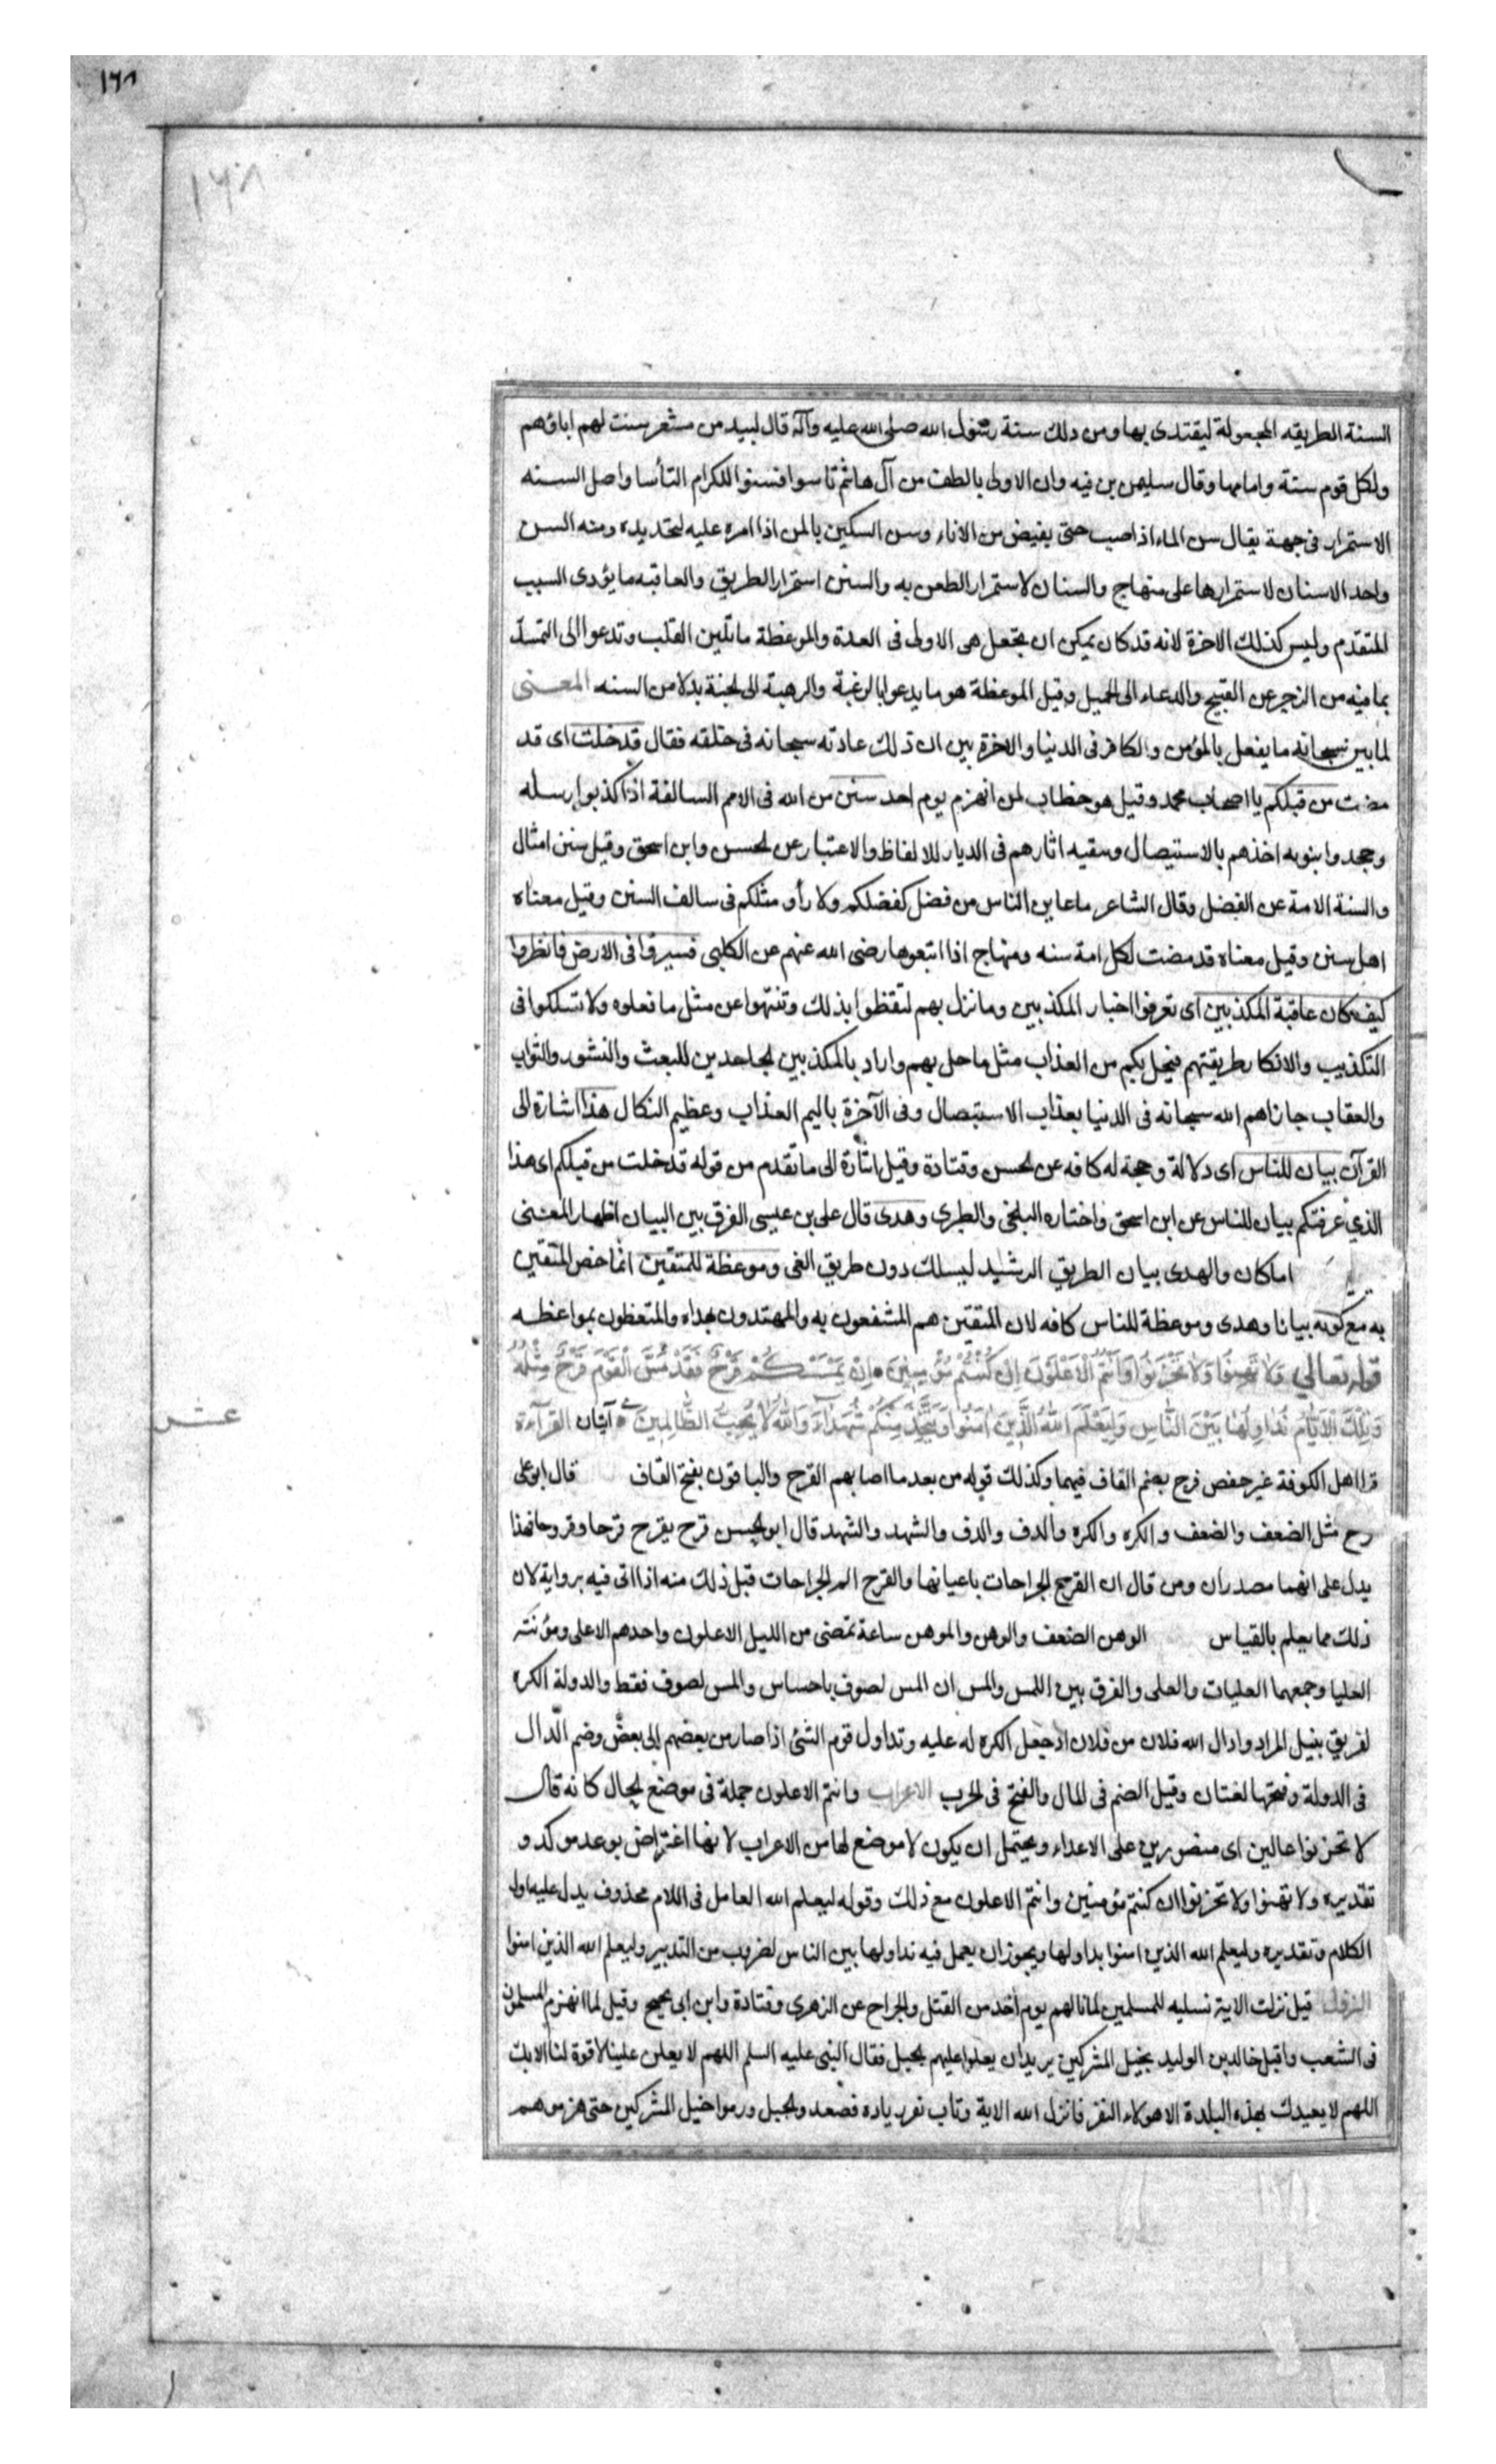 ١٦٨
١٦٨
السنة الطريقه المجعولة ليقتدى بها ومن ذلك سنة رسول الله صلى الله عليه وآله قال لبيد من معشر سنت لهم اباؤهم
ولكل قوم سنة وامامها وقال سليمن بن فيه وان الاولى بالطف من آل هاشم تاسوا فسنوا للكرام التأسا واصل السنه
الاستمرار فى جهة يقال سن الماء اذا صب حتى يفيض من الاناء وسن السكين بالمسن اذا امره عليه لتحديده ومنه السن
واحد الاسنان لاستمرارها على منهاج والسنان لاستمرار الطعن به والسنن استمرار الطريق والعاقبه ما يؤدى السبب
المتقدم وليس كذلك الاخرة لانه قد كان يمكن ان يجعل هى الاولى فى العدة والموعظة ما تلين القلب وتدعوا الى التمسك
بما فيه من الزجر عن القبيح والدعاء الى الجميل وقيل الموعظة هو ما يدعوا بالرغبة والرهبة الى الجنة بدلا من السنه المعنى
لما بين سبحانه ما يفعل بالمؤمن والكافر فى الدنيا والاخرة بين ان ذلك عادته سبحانه فى خلقه فقال قد خلت اى قد
مضت من قبلكم يا اصحاب محمد وقيل هو خطاب لمن انهزم يوم احد سنن من الله فى الامم السالفة اذا كذبوا رسله
وجحدوا بنوبه اخذهم بالاستيصال وبقيه اثارهم فى الديار للاتفاظ والاعتبار عن الحسن وابن اسحق وقيل سنن امثال
والسنة الامة عن الفضل وقال الشاعر ما عاين الناس من فضل كفضلكم ولا رأو مثلكم فى سالف السنن وقيل معناه
اهل سنن وقيل معناه قد مضت لكل امة سنه ومنهاج اذا اتبعوها رضى الله عنهم عن الكلبى فسيروا فى الارض فانظروا
كيف كان عاقبة المكذبين اى تعرفوا اخبار المكذبين وما نزل بهم لتتعظوا بذلك وتنتهوا عن مثل ما فعلوه ولا تسلكوا فى
التكذيب والانكار طريقتهم فيحل بكم من العذاب مثل ما حل بهم واراد بالمكذبين الجاحدين للبعث والنشور والثواب
والعقاب جازاهم الله سبحانه فى الدنيا بعذاب الاستيصال وفى الآخرة باليم العذاب وعظيم النكال هذا اشارة الى
القرآن بيان للناس اى دلالة وحجة له كافه عن الحسن وقتادة وقيل اشارة الى ما تقدم من قوله قد خلت من قبلكم اى هذا
الذي عرفتكم بيان للناس عن ابن اسحق واختاره البلخى والطبرى وهدى قال على بن عيسى الفرق بين البيان اظهار المعنى
اما كان والهدى بيان الطريق الرشيد ليسلك دون طريق الغى وموعظة للمتقين انما خص المتقين
به مع كونه بيانا وهدى وموعظة للناس كافه لان المتقين هم المنتفعون به والمهتدون بهداه والمتعظون بمواعظه
قوله تعالى وَلَا تَهِنُوا وَلَا تَحْزَنُوا وَأَنْتُمُ الْأَعْلَوْنَ إِنْ كُنْتُمْ مُؤْمِنِينَ إِنْ يَمْسَسْكُمْ قَرْحٌ فَقَدْ مَسَّ الْقَوْمَ قَرْحٌ مِثْلُهُ
وَتِلْكَ الْأَيَّامُ نُدَاوِلُهَا بَيْنَ النَّاسِ وَلِيَعْلَمَ اللَّهُ الَّذِينَ آمَنُوا وَيَتَّخِذَ مِنْكُمْ شُهَدَاءَ وَاللَّهُ لَا يُحِبُّ الظَّالِمِينَ آيتان القرآءة
عشر
قرا اهل الكوفة غير حفص قرح بضم القاف فيهما وكذلك قوله من بعد ما اصابهم القرح والباقون بفتح القاف قال ابو على
رح مثل الضعف والضعف والكره والكره والدف والدف والشهد والشهد قال ابو الحسن قرح يقرح قرحا وقروحا فهذا
يدل على انهما مصدران ومن قال ان القرح الجراحات باعيانها والقرح الم الجراحات قبل ذلك منه اذا اتى فيه برواية لان
ذلك مما يعلم بالقياس الوهن الضعف والوهن والموهن ساعة تمضى من الليل الاعلون واحدهم الاعلى ومؤنثه
العليا وجمعها العليات والعلى والفرق بين اللمس والمس ان المس لصوف باحساس والمس لصوف فقط والدولة الكره
لفريق بنيل المراد وادال الله فلان من فلان اذ جعل الكره له عليه وتداول قوم الشئ اذا صار من بعضهم الى بعض وضم الدال
فى الدولة وفتحها لغتان وقيل الضم فى المال والفتح فى الحرب الاعراب وانتم الاعلون جملة فى موضع الحال كانه قال
لا تحزنوا عالين اى منصورين على الاعداء ويحتمل ان يكون لا موضع لها من الاعراب لانها اعتراض بوعد موكد و
تقديره ولا تهنوا ولا تحزنوا ان كنتم مؤمنين وانتم الاعلون مع ذلك وقوله ليعلم الله العامل فى اللام محذوف يدل عليه اول
الكلام وتقديره وليعلم الله الذين امنوا بداولها ويجوز ان يعمل فيه نداولها بين الناس لضروب من التدبير وليعلم الله الذين امنوا
النزول قيل نزلت الاية تسليه للمسلمين لما نالهم يوم احد من القتل والجراح عن الزهرى وقتادة وابن ابى نجيح وقيل لما انهزم المسلمون
فى الشعب واقبل خالد بن الوليد بخيل المشركين يريد ان يعلوا عليهم الجبل فقال النبى عليه السلم اللهم لا يعلن علينا لا قوة لنا الا بك
اللهم لا يعبدك بهذه البلدة الا هولاء النفر فانزل الله الاية وتاب نفر ياده فصعدوا الجبل ورموا خيل المشركين حتى هزموهم